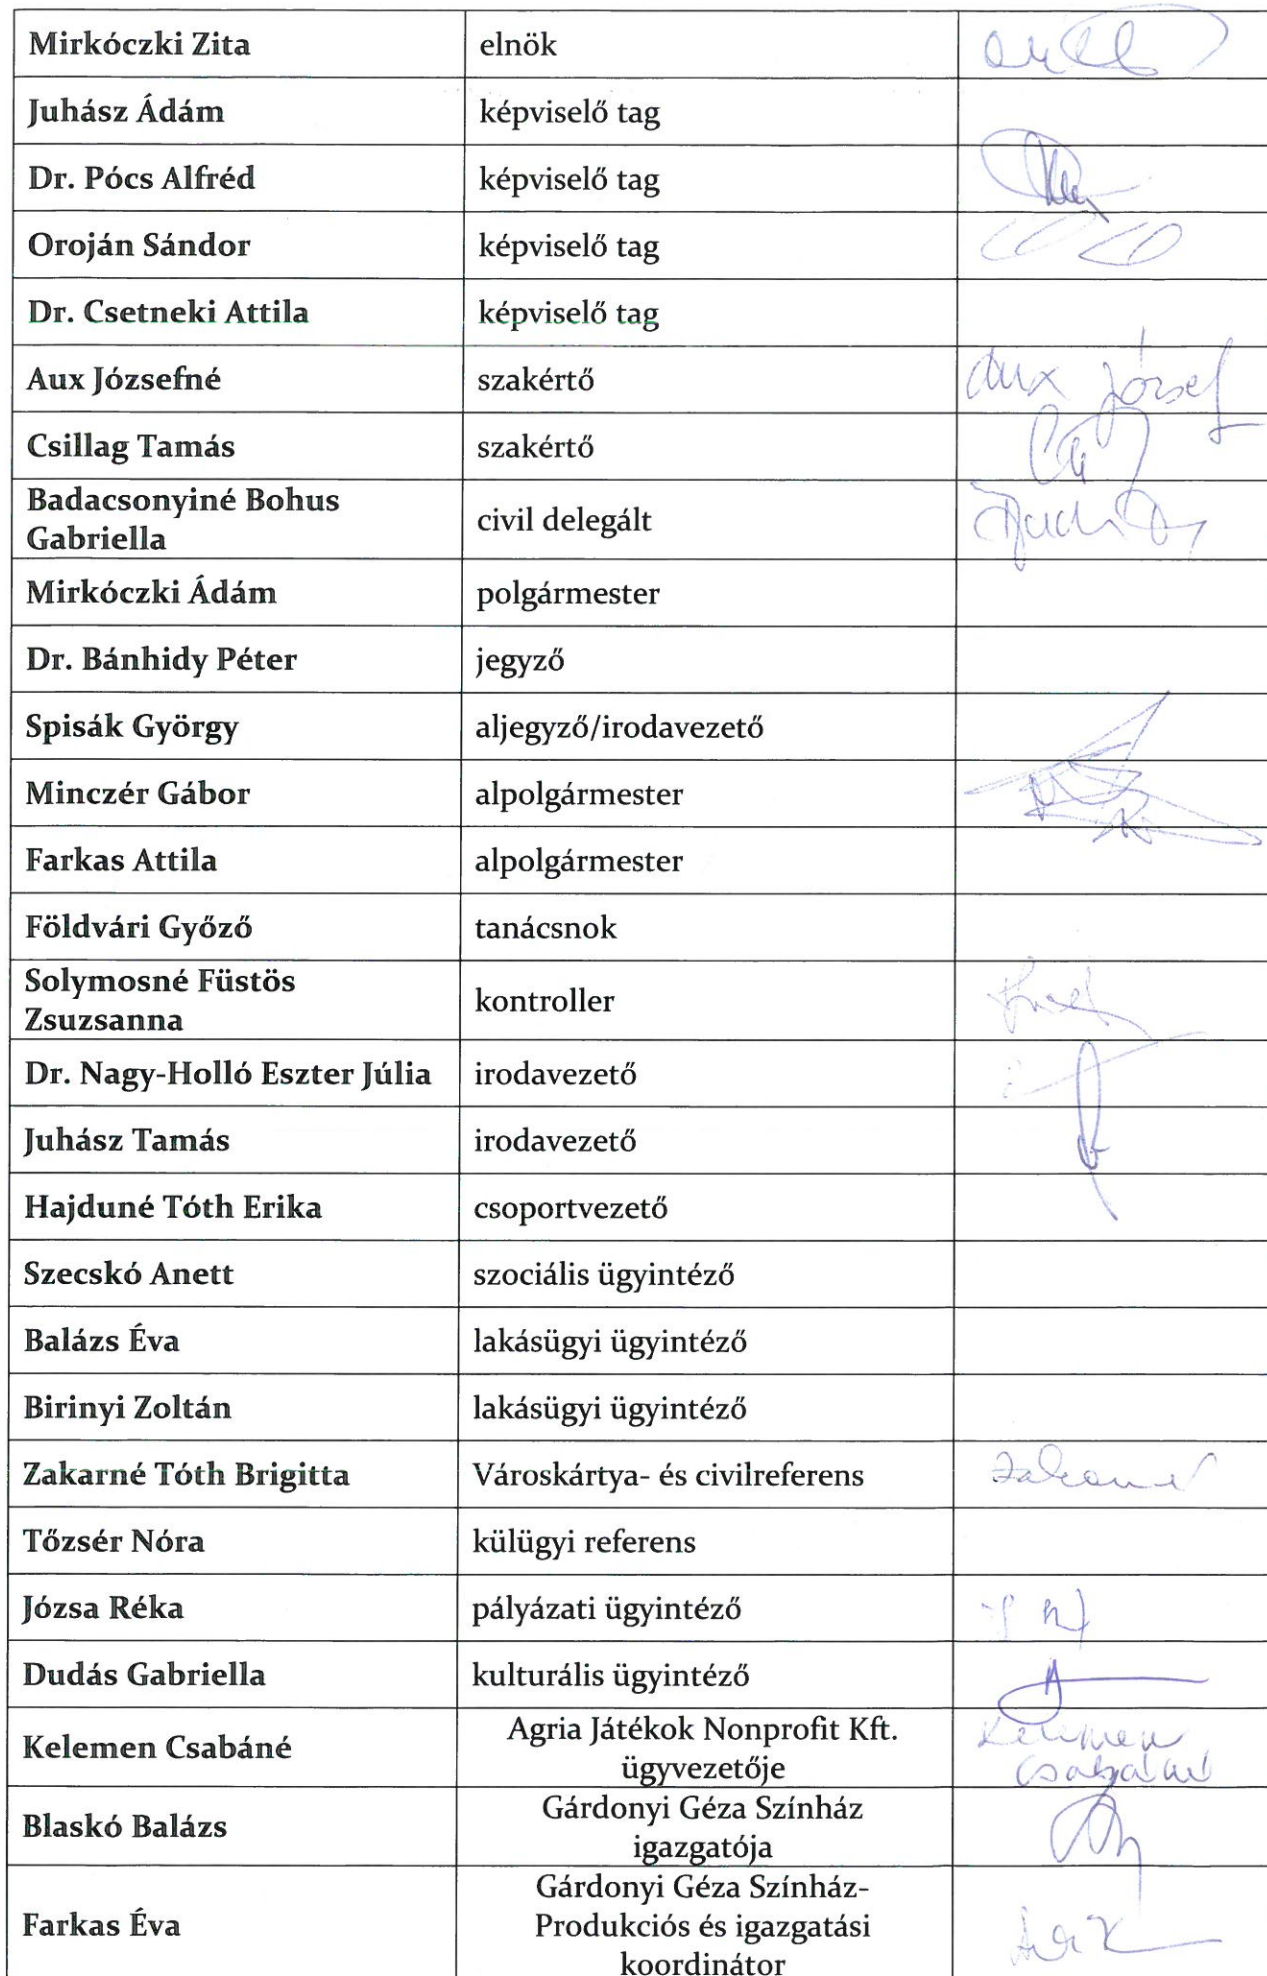 Mirkóczki Zita elnök
Juhász Ádám képviselő tag
Dr. Pócs Alfréd képviselő tag
Oroján Sándor képviselő tag
Dr. Csetneki Attila képviselő tag
Aux Józsefné szakértő Aux József
Csillag Tamás szakértő
Badacsonyiné Bohus
Gabriella
civil delegált
Mirkóczki Ádám polgármester
Dr. Bánhidy Péter jegyző
Spisák György aljegyző/irodavezető
Minczér Gábor alpolgármester
Farkas Attila alpolgármester
Földvári Győző tanácsnok
Solymosné Füstös
Zsuzsanna
kontroller
Dr. Nagy-Holló Eszter Júlia irodavezető
Juhász Tamás irodavezető
Hajduné Tóth Erika csoportvezető
Szecskó Anett szociális ügyintéző
Balázs Éva lakásügyi ügyintéző
Birinyi Zoltán lakásügyi ügyintéző
Zakarné Tóth Brigitta Városkártya- és civilreferens
Tőzsér Nóra külügyi referens
Józsa Réka pályázati ügyintéző
Dudás Gabriella kulturális ügyintéző
Kelemen Csabáné
Agria Játékok Nonprofit Kft.
ügyvezetője
Kelemen
Csabáné
Blaskó Balázs
Gárdonyi Géza Színház
igazgatója
Farkas Éva
Gárdonyi Géza Színház-
Produkciós és igazgatási
koordinátor